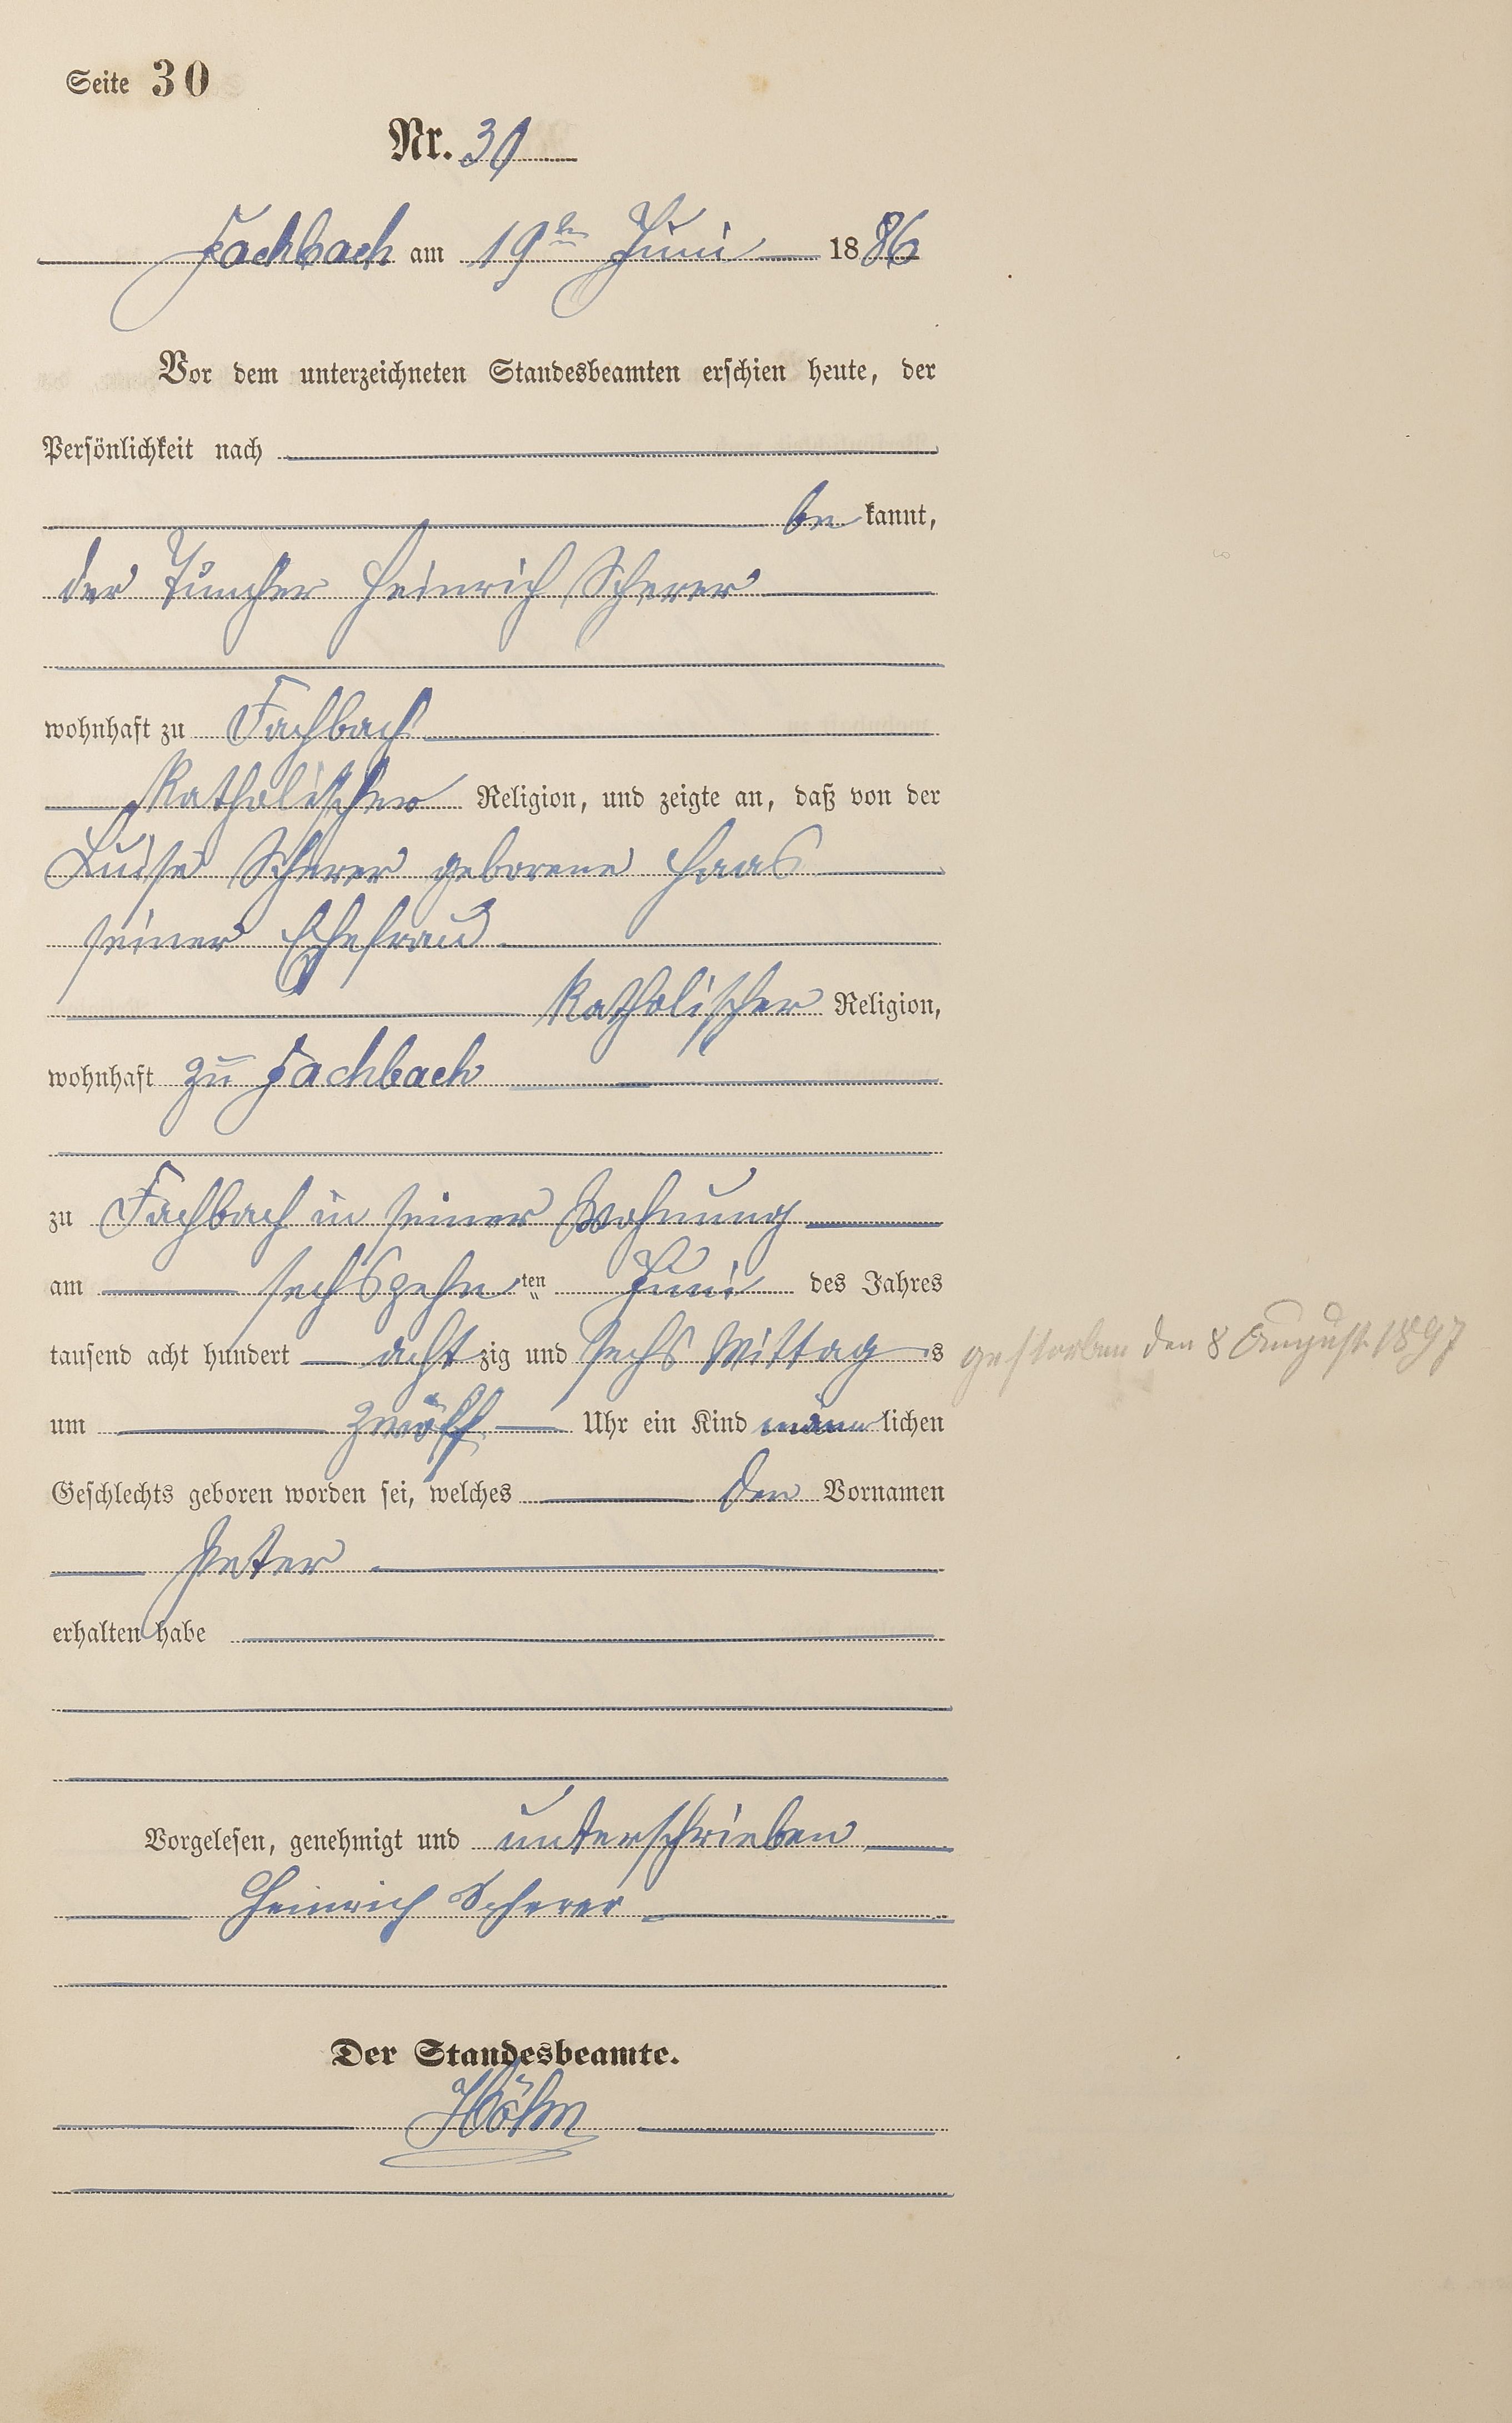 Seite 30
Nr. 30
Fachbach am 19ten Juni 1886
Vor dem unterzeichneten Standesbeamten erschien heute, der
Persönlichkeit nach
be kannt,
der Tüncher Heinrich Scherer
wohnhaft zu Fachbach
katholischer Religion, und zeigte an, daß von der
Luise Scherer geborene Haas
seiner Ehefrau
katholischer Religion,
wohnhaft zu Fachbach
zu Fachbach in seiner Wohnung
am sechszehn ten Juni des Jahres
tausend acht hundert acht zig und sechs Mittag s
gestorben den 8 August 1897
um zwölf Uhr ein Kind männ lichen
Geschlechts geboren worden sei, welches den Vornamen
Peter
erhalten habe
Vorgelesen, genehmigt und unterschrieben
Heinrich Scherer
Der Standesbeamte.